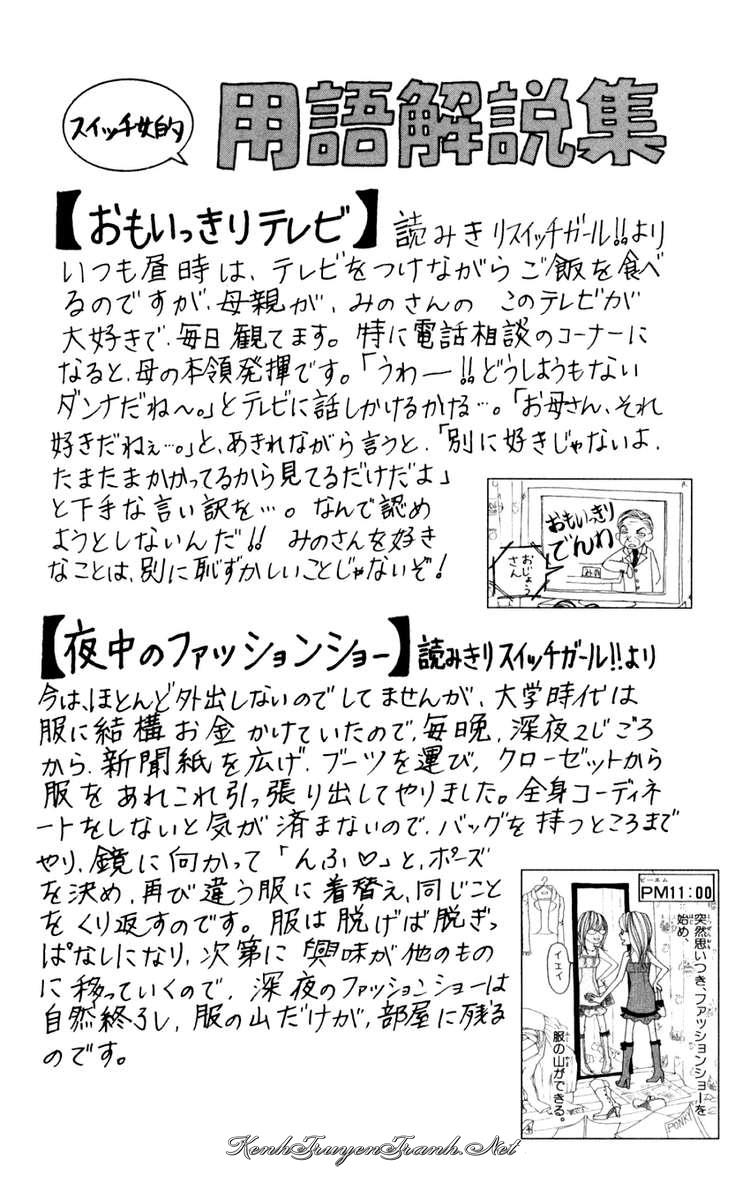 スイッチ女的
用語解説集
【おもいっきりテレビ】 読みきりスイッチガール!!より
いつも昼時は、テレビをつけながらご飯を食べ
るのですが、母親が、みのさんの このテレビが
大好きで、毎日観てます。特に電話相談のコーナーに
なると、母の本領発揮です。「うわー!!どうしようもない
ダンナだね〜。」とテレビに話しかけるかける…。「お母さん、それ
好きだねぇ…。」と、あきれながら言うと、「別に好きじゃないよ、
たまたまかかってるから見てるだけだよ」
と下手な言い訳を…。なんで認め
ようとしないんだ!! みのさんを好き
なことは、別に恥ずかしいことじゃないぞ!
おもいっきり
でんわ
おじょう
さん
【夜中のファッションショー】読みきりスイッチガール!!より
今は、ほとんど外出しないのでしてませんが、大学時代は
服に結構お金かけていたので、毎晩、深夜2じごろ
から、新聞紙を広げ、ブーツを運び、クローゼットから
服をあれこれ引っ張り出してやりました。全身コーディネ
ートをしないと気が済まないので、バッグを持つところまで
やり、鏡に向かって「んふ♡」と、ポーズ
を決め、再び違う服に着替え、同じこと
をくり返すのです。服は脱げば脱ぎっ
ぱなしになり、次第に興味が他のもの
に移っていくので、深夜のファッションショーは
自然終了し、服の山だけが、部屋に残る
のです。
ピーエム
PM11:00
突然思いつき、ファッションショーを
始め、
イエイ
服の山ができる。
PONKY
KenhTruyenTranh.Net